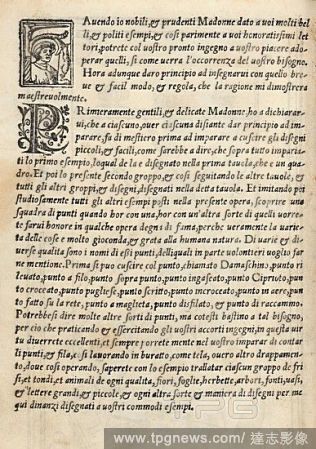 HAuendo io nobili, & prudenti Madonne dato a uoi molti bel
li, & politi esempi, & cosi parimente a uoi honoratissimi let
tori, potrete col uostro pronto ingegno a uostro piacere ado
perar quelli, si come uerra l'occorrenza del uostro bisogno.
Hora adunque daro principio ad insegnarui con quello bre
ue & facil modo, & regola, che la ragione mi dimostrera
maestreuolmente.
PRimieramente gentili, & delicate Madonne, ho a dichiarar
ui, che a ciascuno, ouer ciascuna disiante dar principio ad im
parare, fa di mestiero prima ad imparare a cuscire gli disegni
piccoli, & facili, come sarebbe a dire, che sopra tutto impariate
lo primo esempio, loqual de la e disegnato nella prima tauola, che e un qua
dro. Et poi lo presente secondo gruppo, & cosi seguitando le altre tauole, &
tutti gli altri groppi, & disegni, disegnati nella detta tauola. Et imitando poi
studiosamente tutti gli altri esempi posti nella presente opera, scoprire una
squadra di punti quando hor con una, hor con un'altra sorte di quelli uorre
te farui honore in qualche opera degna di fama, perche ueramente la uarie
ta delle cose e molto gioconda, & grata alla humana natura. Di uarie & di
uerse qualita sono i nomi di essi punti, delliquali in parte uolontieri uoglio far
ne mentione. Prima si puo cuscire col punto, chiamato Damaschino, punto ri
leuato, punto a filo, punto sopra punto, punto ingaseato, punto Ciprioto, pun
to croceato, punto pugliese, punto scritto, punto incrocato, punto in aere, pun
to fatto su la rete, punto a maglieta, punto disfilato, & punto di raccammo.
Potrebbesi dire molte altre sorti di punti, ma cotesti bastino a tal bisogno,
per cio che praticando & essercitando gli uostri accorti ingegni, in questa uir
tu diuerrete eccellenti, et sempre porrete mente nel uostro imparar di contar
li punti, & fila, cosi lauorando in buratto, come tela, ouero altro drappamento,
doue cosi operando, saperete con lo esempio trallatar ciascun groppo de fri
si, et tondi, et animali de ogni qualita, fiori, foglie, herbette, arbori, fonti, uasi,
& lettere grandi, & piccole, & ogni altra sorte & maniera di disegni per me
qui dinanzi disegnati a uostri commodi esempi.
TPG
www.tpgnews.com/達志影像